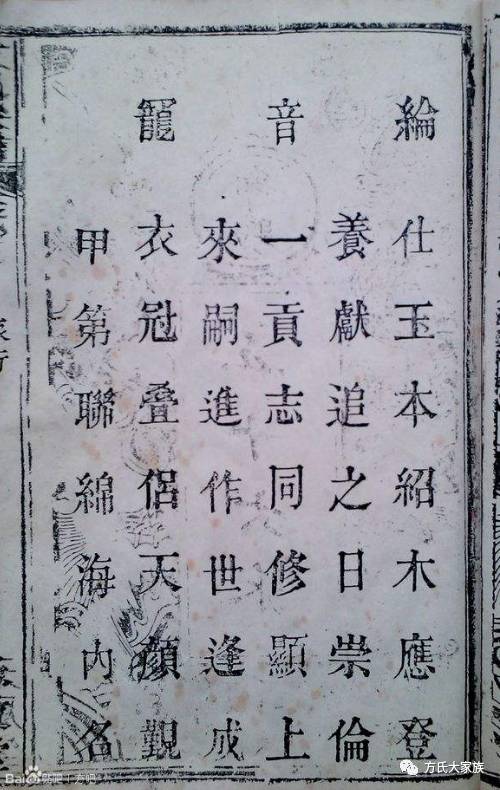 綸 仕玉本紹木應登
養獻追之日崇倫
音 一貢志同修顯上
來嗣進作世逢成
寵 衣冠叠侶天顏覲
甲第聯綿海內名
方氏大家族
Bai 百科